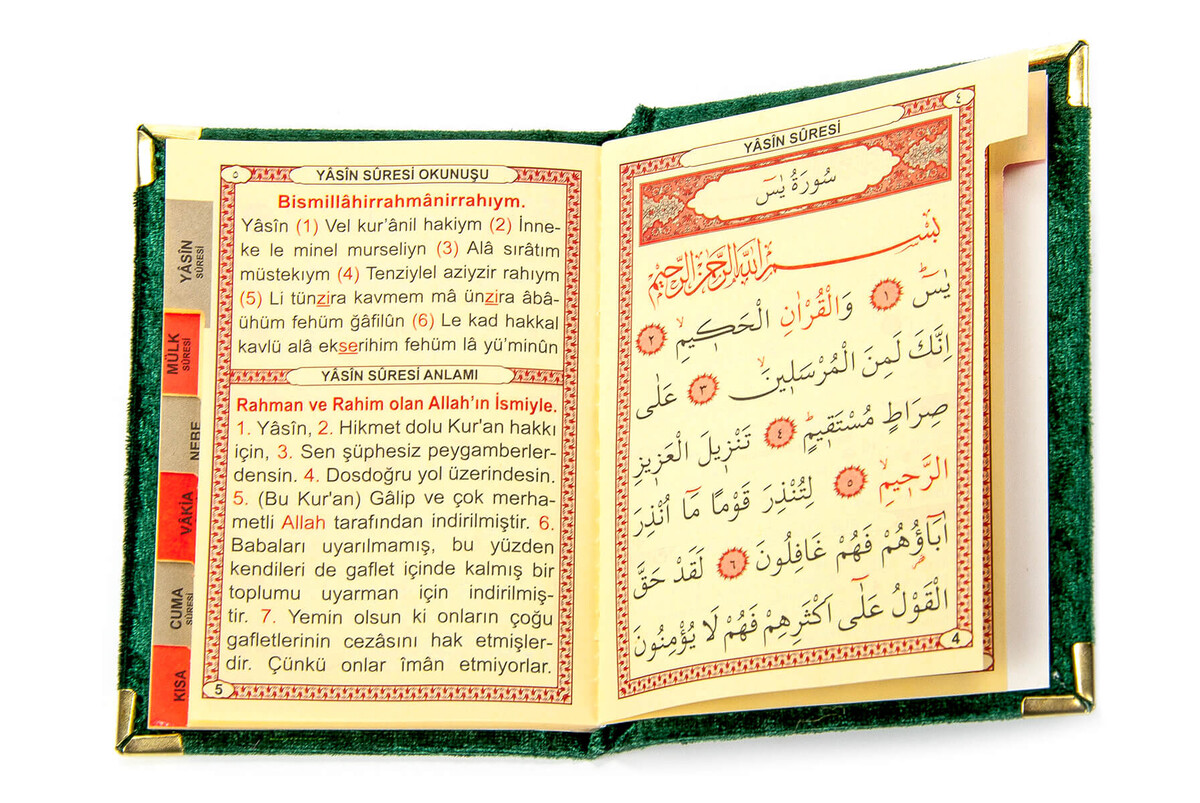 ٤
YÂSİN SÛRESİ
سُورَةُ يٰسٓ
بِسْمِ اللّٰهِ الرَّحْمٰنِ الرَّحِيمِ
يٰسٓ ۚ ١ وَالْقُرْاٰنِ الْحَكِيمِ ۙ ٢
اِنَّكَ لَمِنَ الْمُرْسَلِينَ ۙ ٣ عَلٰى
صِرَاطٍ مُسْتَقِيمٍ ۜ ٤ تَنْزِيلَ الْعَزِيزِ
الرَّحِيمِ ۙ ٥ لِتُنْذِرَ قَوْمًا مَٓا اُنْذِرَ
اٰبَٓاؤُ۬هُمْ فَهُمْ غَافِلُونَ ٦ لَقَدْ حَقَّ
الْقَوْلُ عَلٰٓى اَكْثَرِهِمْ فَهُمْ لَا يُؤْمِنُونَ
4
٥
YÂSİN SÛRESİ OKUNUŞU
Bismillâhirrahmânirrahıym.
Yâsîn (1) Vel kur’ânil hakiym (2) İnne-
ke le minel murseliyn (3) Alâ sırâtım
müstekıym (4) Tenziylel aziyzir rahıym
(5) Li tünzira kavmem mâ ünzira âbâ-
ühüm fehüm ğâfilûn (6) Le kad hakkal
kavlü alâ ekserihim fehüm lâ yü’minûn
YÂSİN SÛRESİ ANLAMI
Rahman ve Rahim olan Allah’ın İsmiyle.
1. Yâsîn, 2. Hikmet dolu Kur'an hakkı
için, 3. Sen şüphesiz peygamberler-
densin. 4. Dosdoğru yol üzerindesin.
5. (Bu Kur'an) Gâlip ve çok merha-
metli Allah tarafından indirilmiştir. 6.
Babaları uyarılmamış, bu yüzden
kendileri de gaflet içinde kalmış bir
toplumu uyarman için indirilmiş-
tir. 7. Yemin olsun ki onların çoğu
gafletlerinin cezâsını hak etmişler-
dir. Çünkü onlar îmân etmiyorlar.
5
YÂSÎN
SÛRESİ
MÜLK
SÛRESİ
NEBE
VÂKIA
CUMA
SÛRESİ
KISA